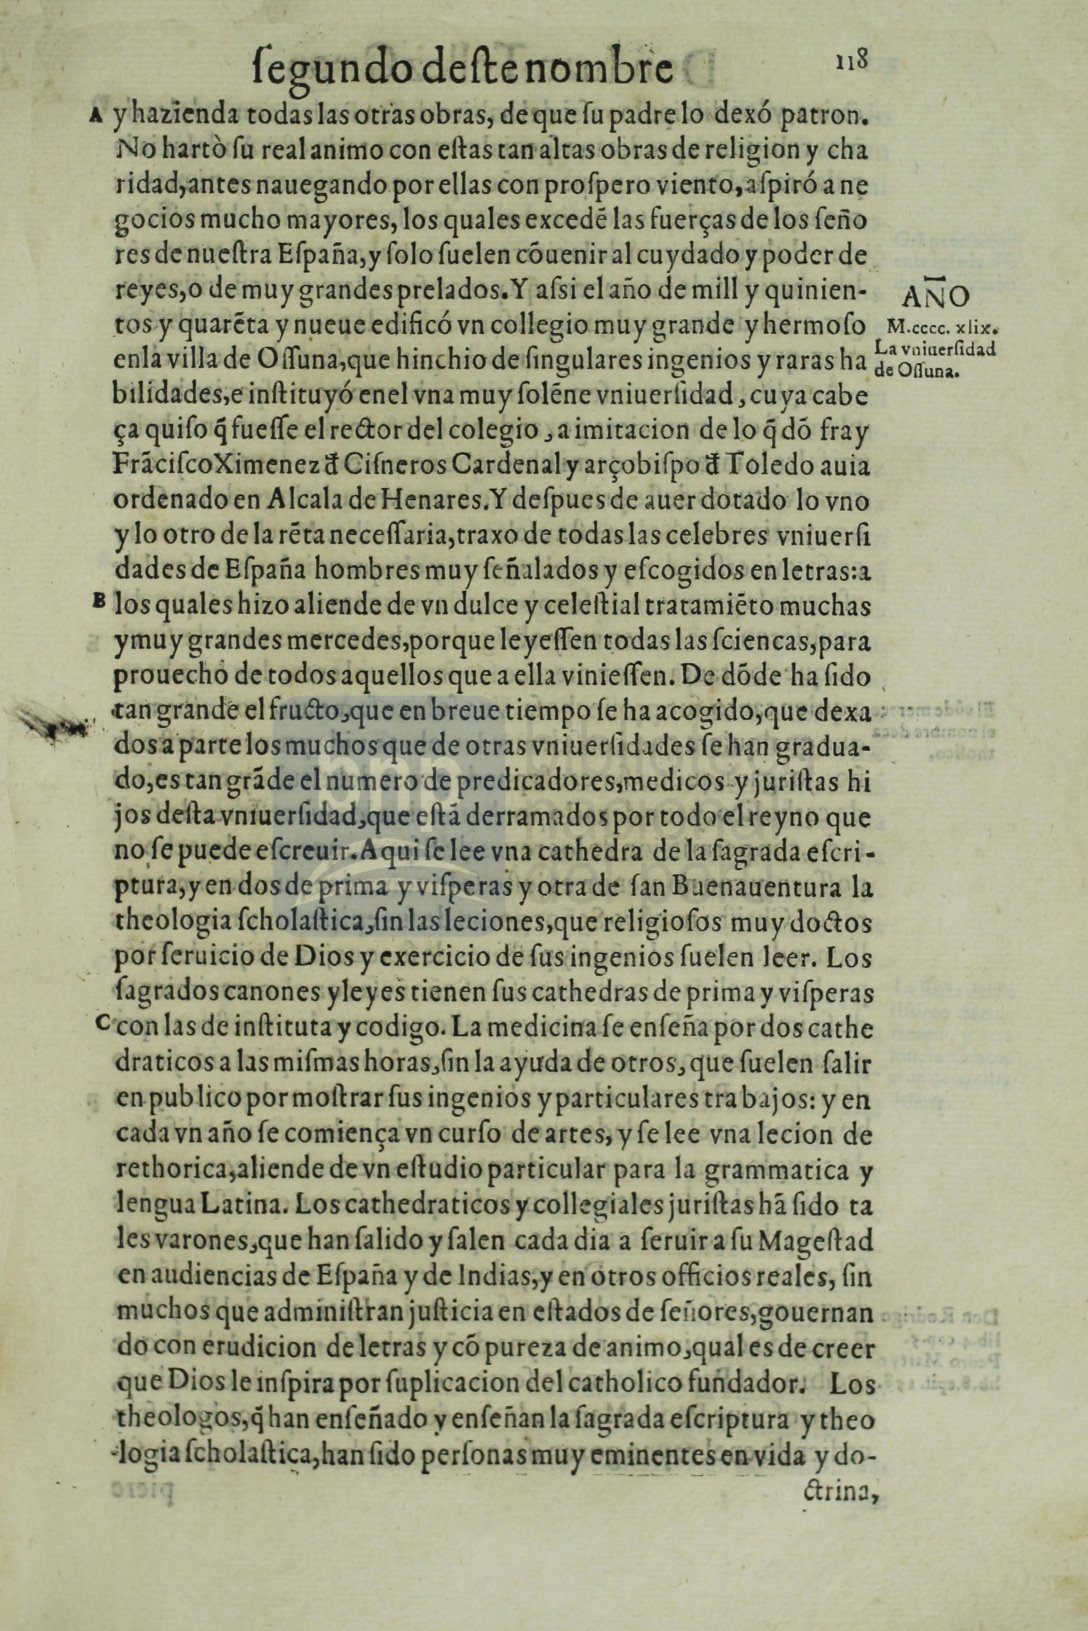 ſegundo deſte nombre 118
A y hazienda todas las otras obras, de que ſu padre lo dexó patron.
No hartò ſu real animo con eſtas tan altas obras de religion y cha
ridad, antes nauegando por ellas con proſpero viento, aſpiró a ne
gocios mucho mayores, los quales excedẽ las fuerças de los ſeño
res de nueſtra Eſpaña, y ſolo ſuelen cõuenir al cuydado y poder de
reyes, o de muy grandes prelados. Y aſsi el año de mill y quinien-
tos y quarẽta y nueue edificó vn collegio muy grande y hermoſo
en la villa de Oſſuna, que hinchio de ſingulares ingenios y raras ha
bilidades, e inſtituyó en el vna muy ſolẽne vniuerſidad, cuya cabe
ça quiſo q̃ fueſſe el rector del colegio, a imitacion de lo q̃ dõ fray
Frãciſco Ximenez đ Ciſneros Cardenal y arçobiſpo đ Toledo auia
ordenado en Alcala de Henares. Y deſpues de auer dotado lo vno
y lo otro de la rẽta neceſſaria, traxo de todas las celebres vniuerſi
dades de Eſpaña hombres muy ſeñalados y eſcogidos en letras: a
B los quales hizo aliende de vn dulce y celeſtial tratamiẽto muchas
y muy grandes mercedes, porque leyeſſen todas las ſciencas, para
prouecho de todos aquellos que a ella vinieſſen. De dõde ha ſido
tan grande el fructo, que en breue tiempo ſe ha acogido, que dexa
dos a parte los muchos que de otras vniuerſidades ſe han gradua-
do, es tan grãde el numero de predicadores, medicos y juriſtas hi
jos deſta vniuerſidad, que eſtã derramados por todo el reyno que
no ſe puede eſcreuir. Aqui ſe lee vna cathedra de la ſagrada eſcri-
ptura, y en dos de prima y viſperas y otra de ſan Buenauentura la
theologia ſcholaſtica, ſin las leciones, que religioſos muy doctos
por ſeruicio de Dios y exercicio de ſus ingenios ſuelen leer. Los
ſagrados canones y leyes tienen ſus cathedras de prima y viſperas
C con las de inſtituta y codigo. La medicina ſe enſeña por dos cathe
draticos a las miſmas horas, ſin la ayuda de otros, que ſuelen ſalir
en publico por moſtrar ſus ingenios y particulares trabajos: y en
cada vn año ſe comiença vn curſo de artes, y ſe lee vna lecion de
rethorica, aliende de vn eſtudio particular para la grammatica y
lengua Latina. Los cathedraticos y collegiales juriſtas hã ſido ta
les varones, que han ſalido y ſalen cada dia a ſeruir a ſu Mageſtad
en audiencias de Eſpaña y de Indias, y en otros officios reales, ſin
muchos que adminiſtran juſticia en eſtados de ſeñores, gouernan
do con erudicion de letras y cõ pureza de animo, qual es de creer
que Dios le inſpira por ſuplicacion del catholico fundador. Los
theologos, q̃ han enſeñado y enſeñan la ſagrada eſcriptura y theo
logia ſcholaſtica, han ſido perſonas muy eminentes en vida y do-
ctrina,
AÑO
M.cccc. xlix.
La vniuerſidad
de Oſſuna.